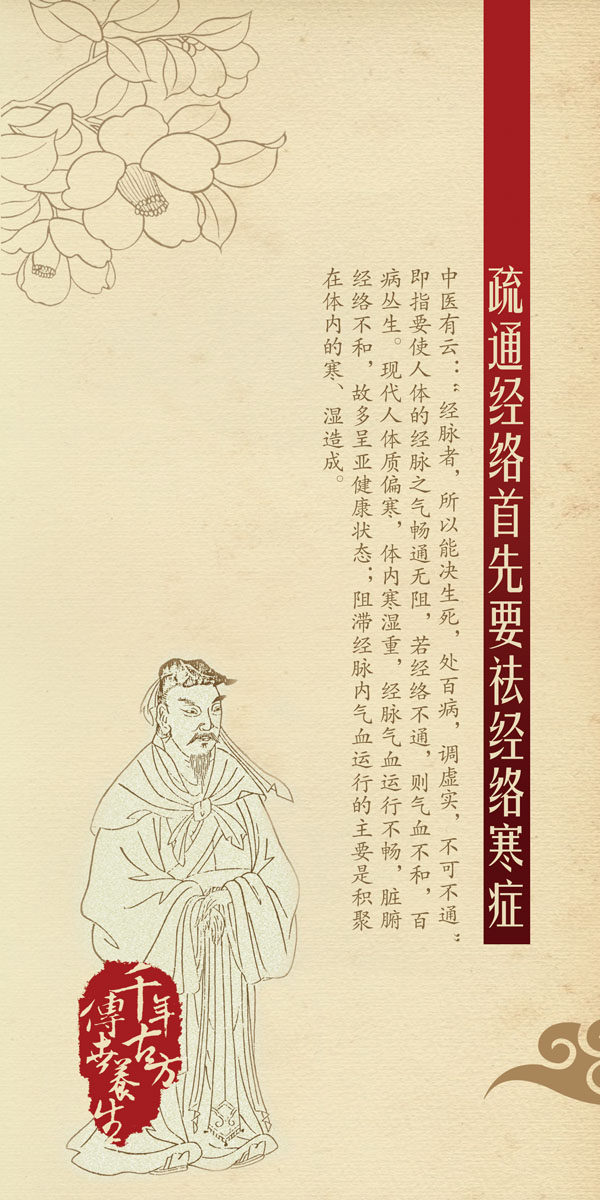 疏通经络首先要祛经络寒症
中医有云：“经脉者，所以能决生死，处百病，调虚实，不可不通“
即指要使人体的经脉之气畅通无阻，若经络不通，则气血不和，百
病丛生。现代人体质偏寒，体内寒湿重，经脉气血运行不畅，脏腑
经络不和，故多呈亚健康状态；阻滞经脉内气血运行的主要是积聚
在体内的寒、湿造成。
千年古方
傳世養生